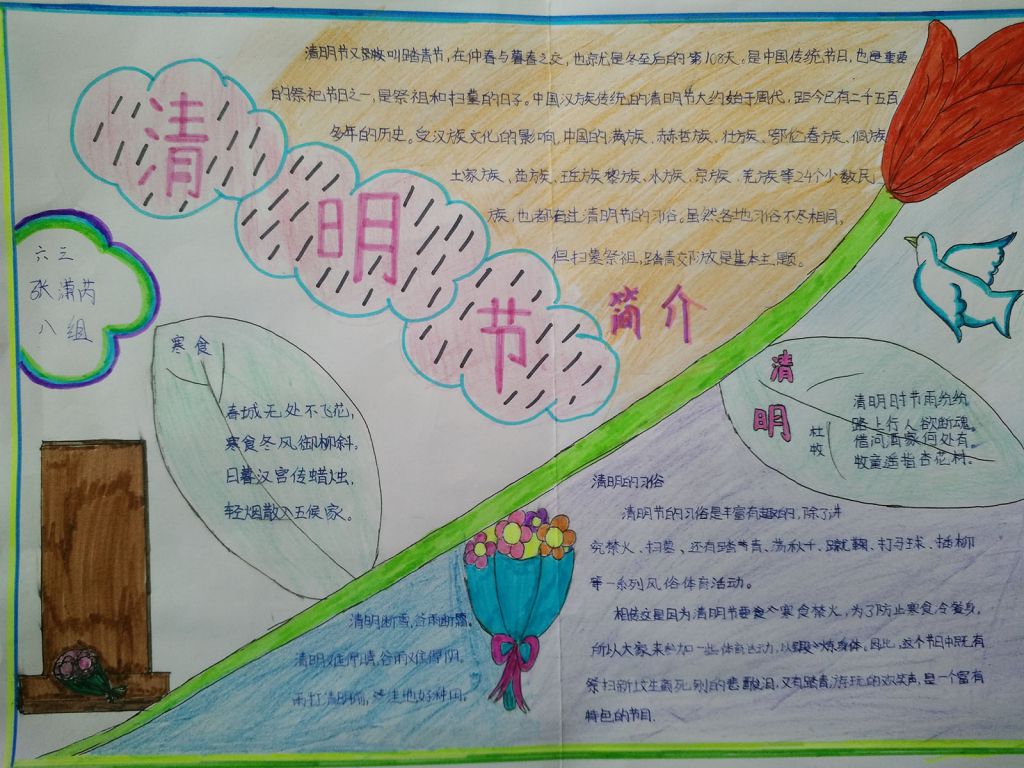 清明节又叫踏青节，在仲春与暮春之交，也就是冬至后的第108天。是中国传统节日，也是重要
的祭祀节日之一，是祭祖和扫墓的日子。中国汉族传统的清明节大约始于周代，距今已有二千五百
多年的历史。受汉族文化的影响，中国的满族、赫哲族、壮族、鄂伦春族、侗族、
土家族、苗族、瑶族、黎族、水族、京族、羌族等24个少数民
族，也都有过清明节的习俗。虽然各地习俗不尽相同，
但扫墓祭祖，踏青郊游是基本主题。
清明节
简介
六三
张满芮
八组
寒食
春城无处不飞花，
寒食冬风御柳斜，
日暮汉宫传蜡烛，
轻烟散入五侯家。
清明
杜牧
清明时节雨纷纷
路上行人欲断魂。
借问酒家何处有。
牧童遥指杏花村。
清明的习俗
清明节的习俗是丰富有趣的，除了讲
究禁火、扫墓、还有踏青、荡秋千、蹴鞠、打马球、插柳
等一系列风俗体育活动。
相传这是因为清明节要寒食禁火，为了防止寒食冷餐身，
所以大家来参加一些体育运动，以锻炼身体。因此，这个节日中既有
祭扫新坟生离死别的悲酸泪，又有踏青游玩的欢笑声，是一个富有
特色的节日.
清明断雪，谷雨断霜。
清明难得晴，谷雨难得阴。
雨打清明前，洼地好种田。